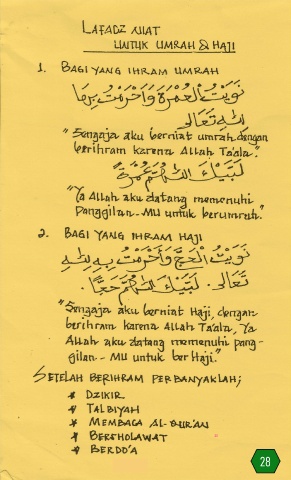 LAFADZ NIAT
UNTUK UMRAH & HAJI
1. BAGI YANG IHRAM UMRAH
نَوَيْتُ الْعُمْرَةَ وَأَحْرَمْتُ بِهَا
لِلّٰهِ تَعَالَى
"Sengaja aku berniat umrah dengan
berihram karena Allah Ta'ala."
لَبَّيْكَ اللّٰهُمَّ عُمْرَةً
"Ya Allah aku datang memenuhi
Panggilan-MU untuk berumrah."
2. BAGI YANG IHRAM HAJI
نَوَيْتُ الْحَجَّ وَأَحْرَمْتُ بِهِ لِلّٰهِ
تَعَالَى. لَبَّيْكَ اللّٰهُمَّ حَجًّا.
"Sengaja aku berniat Haji, dengan
berihram karena Allah Ta'ala, Ya
Allah aku datang memenuhi pang-
gilan-MU untuk berHaji."
SETELAH BERIHRAM PERBANYAKLAH;
* DZIKIR
* TALBIYAH
* MEMBACA AL-QUR'AN
* BERSHOLAWAT
* BERDO'A
28